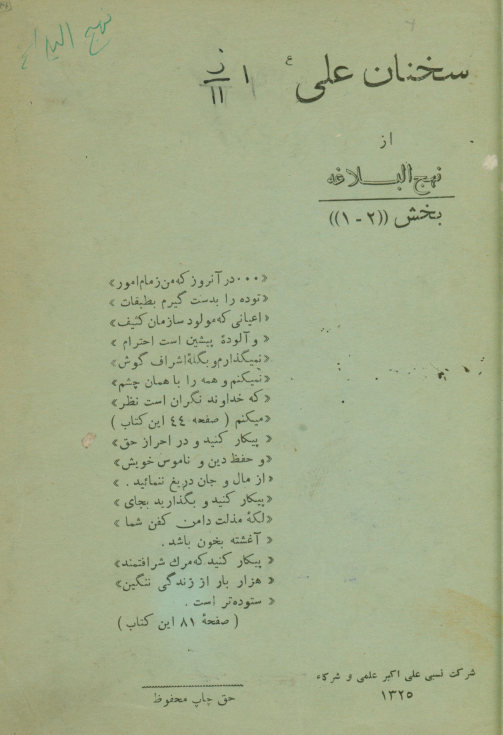 نهج البلاغه
سخنان علی ع
۱ ز
۱۱
از
نهج البلاغه
بخش ((۲-۱))
«۰۰۰ در آنروز که من زمام امور»
«توده را بدست گیرم بطبقات»
«اعیانی که مولود سازمان کثیف»
«و آلودهٔ پیشین است احترام»
«نمیگذارم و بگلهٔ اشراف گوش»
«نمیکنم و همه را با همان چشم»
«که خداوند نگران است نظر»
«میکنم ( صفحه ٤٤ این کتاب )
« پیکار کنید و در احراز حق»
«و حفظ دین و ناموس خویش»
«از مال و جان دریغ ننمائید .»
«پیکار کنید و بگذارید بجای»
«لکهٔ مذلت دامن کفن شما»
« آغشته بخون باشد .
« پیکار کنید که مرك شرافتمند»
« هزار بار از زندگی ننگین»
« ستوده‌تر است .
( صفحهٔ ۸۱ این کتاب )
شرکت نسبی علی اکبر علمی و شرکاء
۱۳۲۵
حق چاپ محفوظ